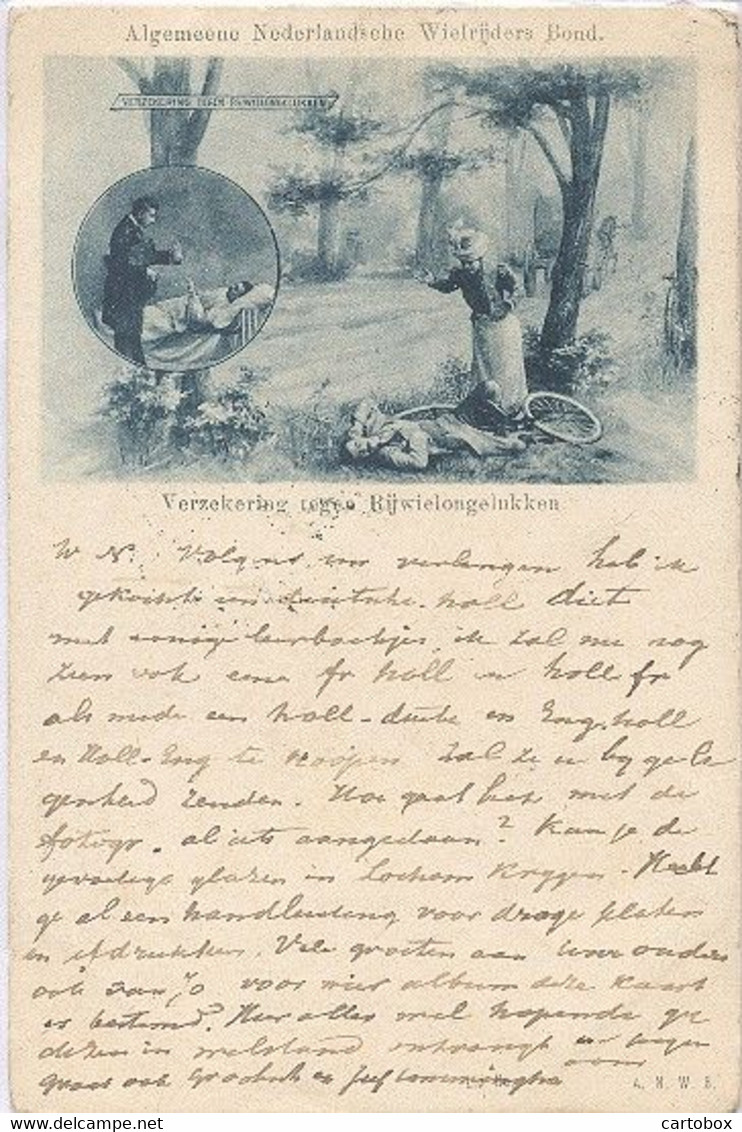 Algemeene Nederlandsche Wielrijders Bond.
VERZEKERING TEGEN RIJWIELONGELUKKEN
Verzekering tegen Rijwielongelukken
W N. Volgens uw verlangen heb ik
gekocht een duitsche. holl
met eenige leerboekjes, ik zal nu nog
zien ook eene fr holl en holl fr
als mede een holl-duits en Eng. holl
en Holl-Eng te koopen zal ze u by gele
genheid zenden. Hoe gaat het met de
fotogr. al iets aangedaan? Kan je de
gevoelige glazen in Lochem krygen. Hebt
ge al een handleiding voor droge platen
en afdrukken. Vele groeten aan uwe ouders
ook van Jo voor wier album deze kaart
is bestemd. Hier alles wel hopende ge
dezen in welstand ontvangt uw
oom
groet ook
A. N. W. B.
cartobox